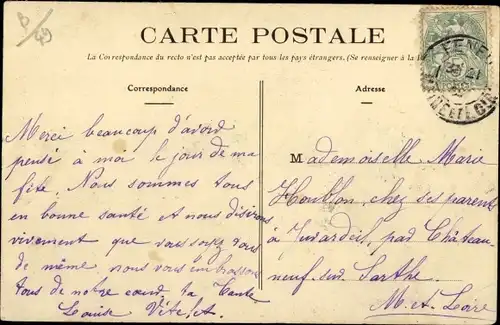 CARTE POSTALE
La Correspondance du recto n'est pas acceptée par tous les pays étrangers. (Se renseigner à la
Correspondance
Adresse
Merci beaucoup d'avoir
pensé à moi le jour de ma
fête. Nous sommes tous
en bonne santé et nous désirons
vivement que vous soyez tous
de même, nous vous embrassons
tous de notre cœur, ta tante
Louise
Mademoiselle Marie
Houblon, chez ses parents
à Juvardeil, par Château
neuf-sur-Sarthe
M-et-Loire